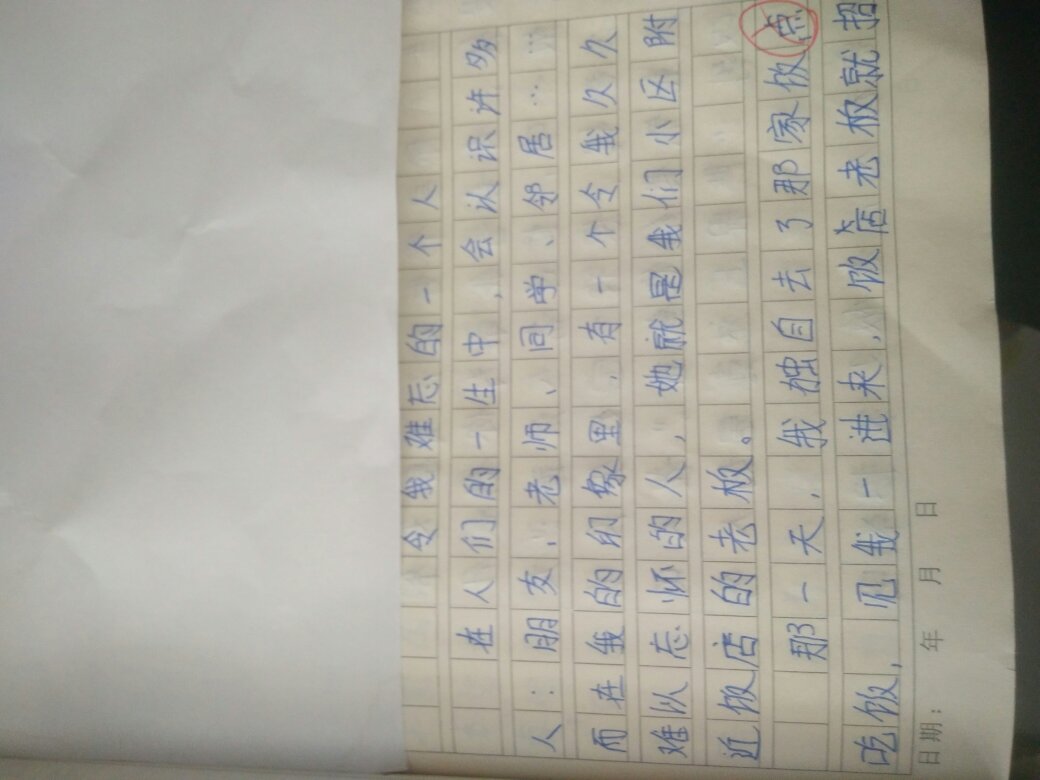 令我难忘的一个人
在人们的一生中，会认识许多
人：朋友、老师、同学、邻居……
而在我的印象里，有一个令我久久
难以忘怀的人，她就是我们小区附
近饭店的老板。
那一天，我独自去了那家饭点
吃饭，见我一进来，饭店老板就招
日期： 年 月 日